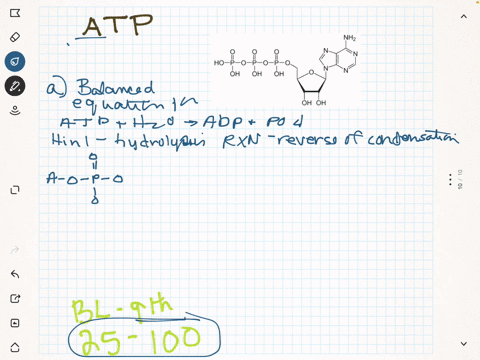 ATP
NH₂
HO-P-O-P-O-P-O
OH OH OH
OH OH
a) Balanced
equation
ATP + H₂O → ADP + PO4
Hint - hydrolysis RXN - reverse of condensation
O
A-O-P-O
O
BL - 9th
25 - 100
10 / 10